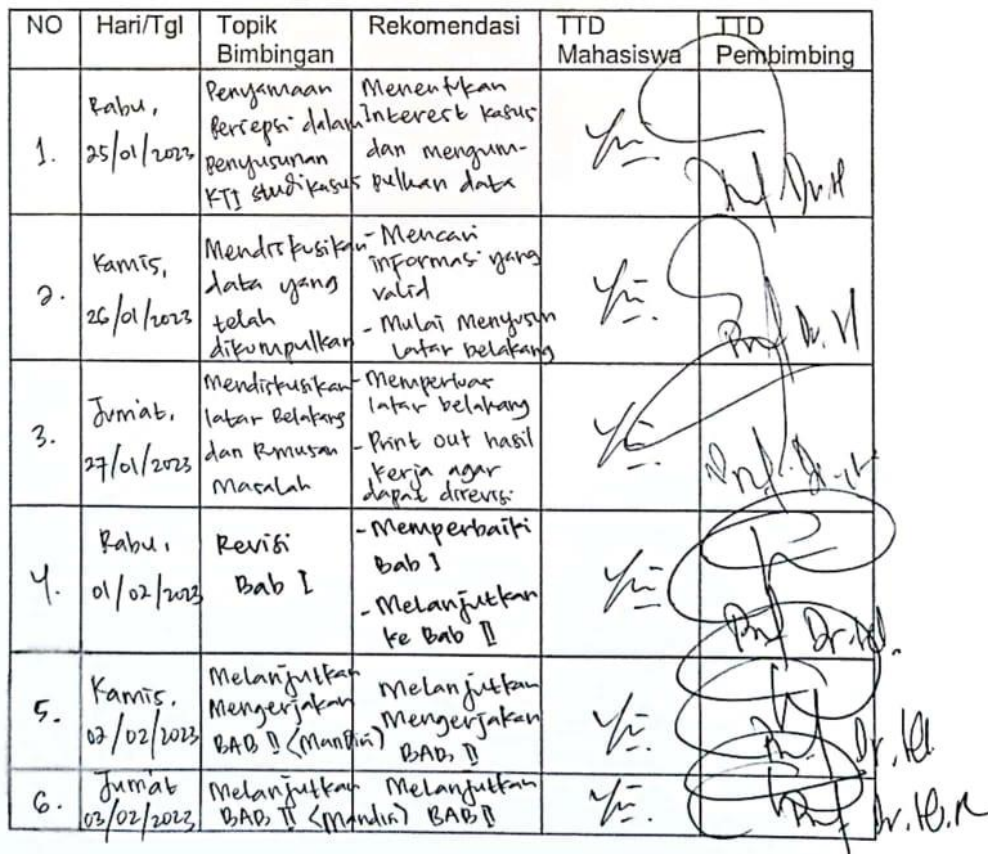 NO Hari/Tgl Topik Bimbingan Rekomendasi TTD Mahasiswa TTD Pembimbing
1.
Rabu,
25/01/2023
Penyamaan
Persepsi dalam
Penyusunan
KTI studi kasus
Menentukan
Interest kasus
dan mengum-
pulkan data
2.
Kamis,
26/01/2023
Mendiskusikan
data yang
telah
dikumpulkan
- Mencari
informasi yang
valid
- Mulai Menyusun
latar belakang
3.
Jumat,
27/01/2023
Mendiskusikan
latar Belakang
dan Rumusan
Masalah
- Memperluas
latar belakang
- Print out hasil
kerja agar
dapat direvisi
4.
Rabu,
01/02/2023
Revisi
Bab I
- Memperbaiki
Bab I
- Melanjutkan
ke Bab II
5.
Kamis,
02/02/2023
Melanjutkan
Mengerjakan
BAB II (Mandiri)
Melanjutkan
Mengerjakan
BAB II
6.
Jumat
03/02/2023
Melanjutkan
BAB II (Mandiri)
Melanjutkan
BAB II